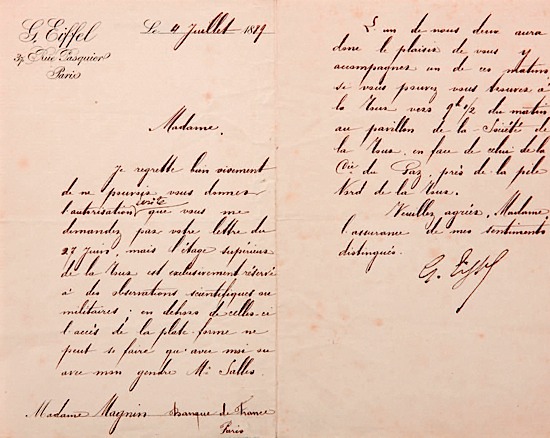 G. Eiffel
37, Rue Pasquier
Paris
Le 4 Juillet 1889
Madame,
Je regrette bien vivement
de ne pouvoir vous donner
l'autorisation écrite que vous me
demandez par votre lettre du
27 Juin, mais l'étage supérieur
de la Tour est exclusivement réservé
à des observations scientifiques ou
militaires ; en dehors de celles-ci
l'accès de la plate-forme ne
peut se faire qu'avec moi ou
avec mon gendre Mr Salles
Madame Magnin Banque de France
Paris
L'un de nous deux aura
donc le plaisir de vous y
accompagner un de ces matins
si vous pouvez vous trouver à
la Tour vers 9h 1/2 du matin
au pavillon de la Société de
la Tour, en face de celui de la
Cie du Gaz, près de la pile
Nord de la Tour.
Veuillez agréer, Madame,
l'assurance de mes sentiments
distingués.
G. Eiffel